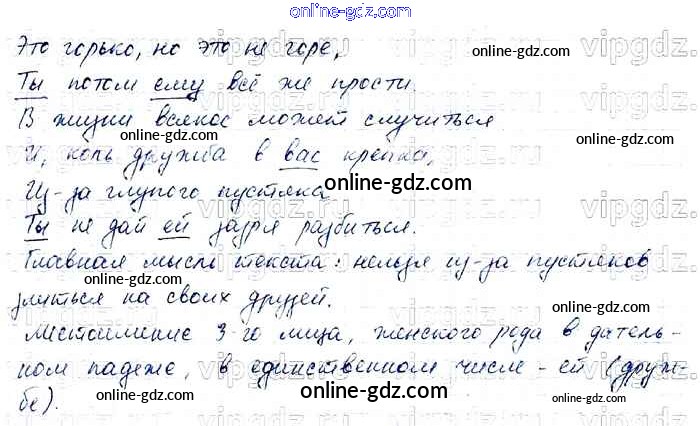 online-gdz.com
Это горько, но это не горе,
online-gdz.com
Ты потом ему всё же прости.
online-gdz.com
В жизни всякое может случиться
online-gdz.com
И, коль дружба в вас крепка,
online-gdz.com
Из-за глупого пустяка
online-gdz.com
Ты не дай ей зазря разбиться.
Главная мысль текста: нельзя из-за пустяков
злиться на своих друзей.
online-gdz.com
Местоимение 3-го лица, женского рода в датель-
ном падеже, в единственном числе - ей (друж-
бе).
online-gdz.com
online-gdz.com